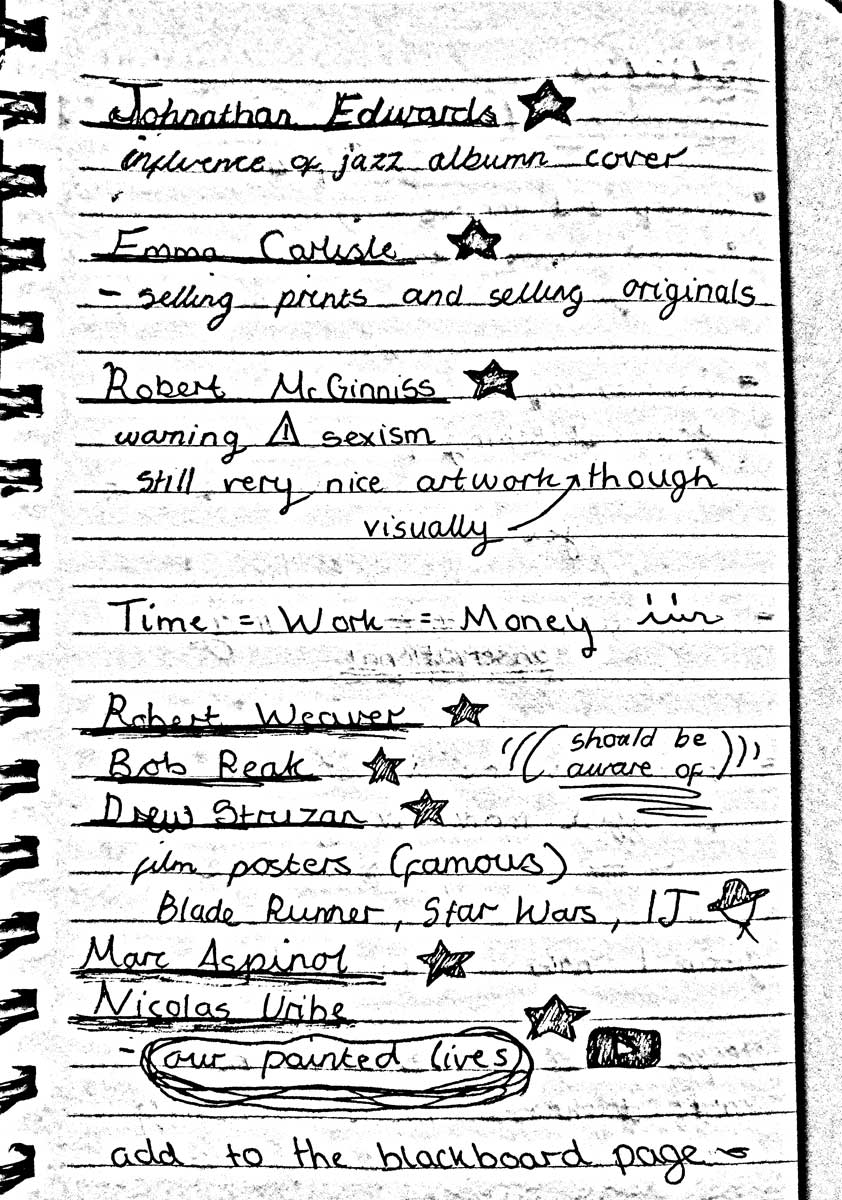 Johnathan Edwards
influence of jazz albumn cover
Emma Carlisle
- selling prints and selling originals
Robert McGinniss
warning ⚠ sexism
still very nice artwork though
visually
Time = Work = Money
Robert Weaver
should be
Bob Peak
aware of
Drew Struzan
film posters (famous)
Blade Runner, Star Wars, IJ
Marc Aspinol
Nicolas Uribe
- our painted lives
add to the blackboard page